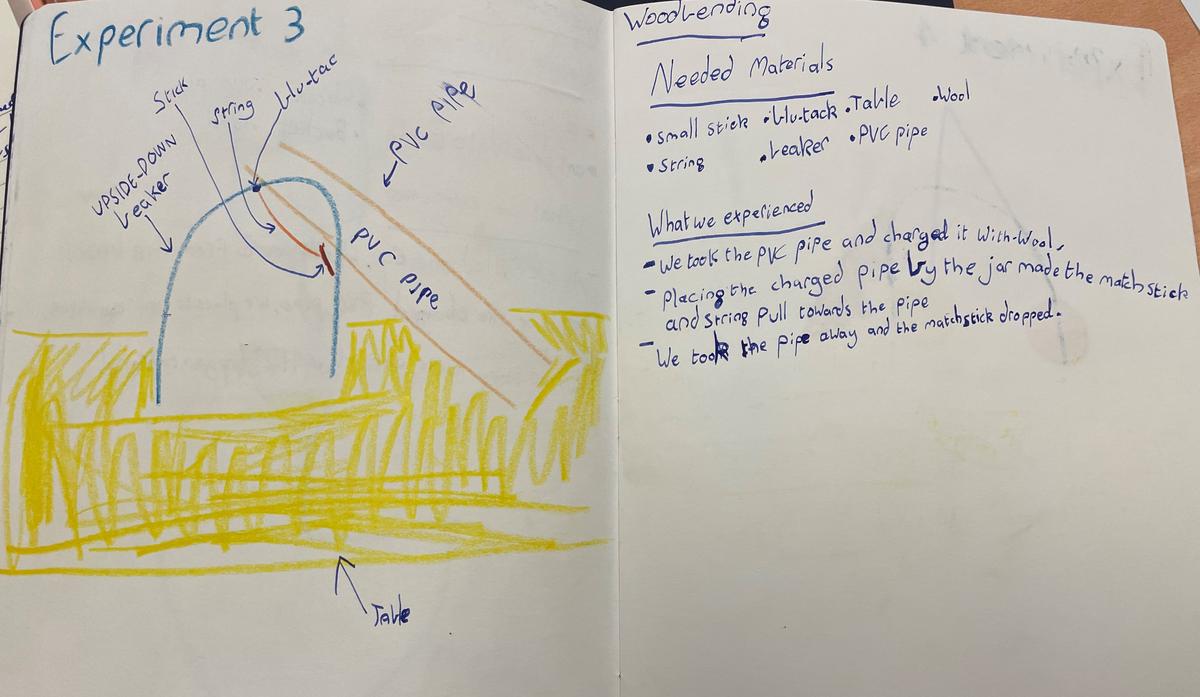 Experiment 3
Stick
String
blu-tac
PVC PIPE
UPSIDE-DOWN
beaker
PVC PIPE
Table
Woodbending
Needed Materials
• small stick • blu-tack • Table • Wool
• String • beaker • PVC pipe
What we experienced
- We took the PVC pipe and charged it With-Wool,
- Placing the charged pipe by the jar made the matchstick
and string Pull towards the pipe
- We took the pipe away and the matchstick dropped.